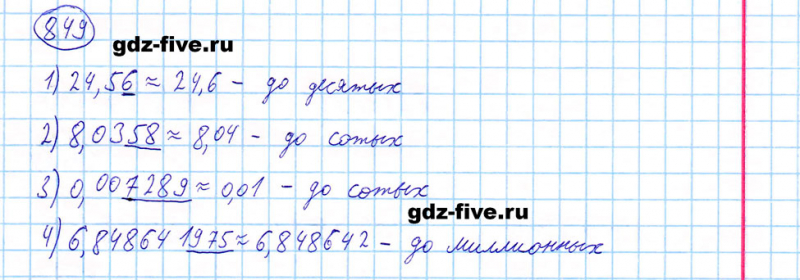 849
gdz-five.ru
1) 24,56 ≈ 24,6 - до десятых
2) 8,0358 ≈ 8,04 - до сотых
3) 0,007289 ≈ 0,01 - до сотых
gdz-five.ru
4) 6,848641975 ≈ 6,848642 - до миллионных